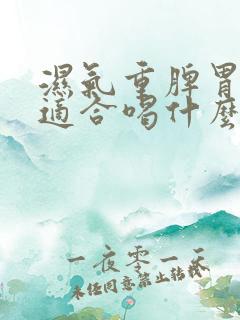 濕氣重脾胃
適合喝什麼
一夜零一天
未经同意禁止转载